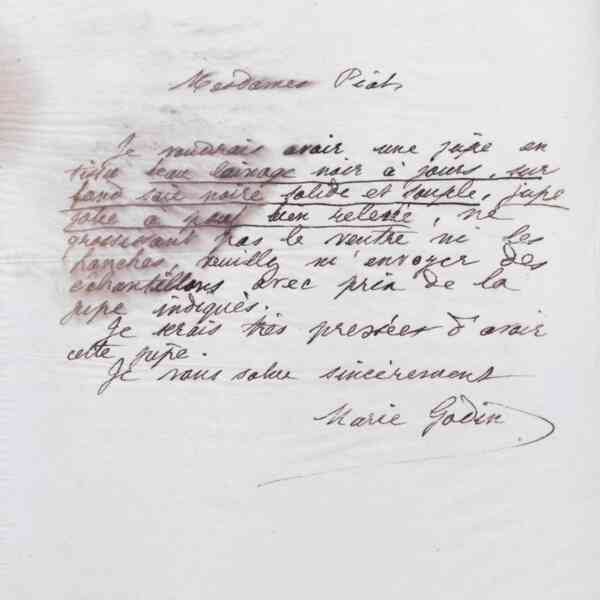 Mesdames Piat
Je voudrais avoir une jupe en
tissu beau lainage noir à jours, sur
fond soie noire solide et souple, jupe
jolie a pour bien relevée, ne
grossissant pas le ventre ni les
hanches, veuillez m'envoyer des
échantillons avec prix de la
jupe indiqués.
Je serais très pressées d'avoir
cette jupe.
Je vous salue sincèrement
Marie Godin